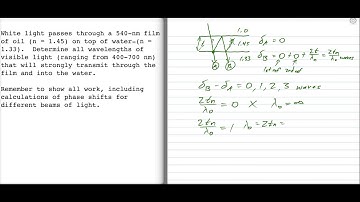 White light passes through a 540-nm film
of oil (n = 1.45) on top of water=(n =
1.33). Determine all wavelengths of
visible light (ranging from 400-700 nm)
that will strongly transmit through the
film and into the water.
Remember to show all work, including
calculations of phase shifts for
different beams of light.
1.0
t
1.45
1.33
A
B
δA = 0
δB = 0 + 0 + 2t/λn = 2tn/λ0 waves
1st ref 2nd ref
δB - δA = 0, 1, 2, 3 waves
2tn/λ0 = 0 X λ0 = ∞
2tn/λ0 = 1 λ0 = 2tn =